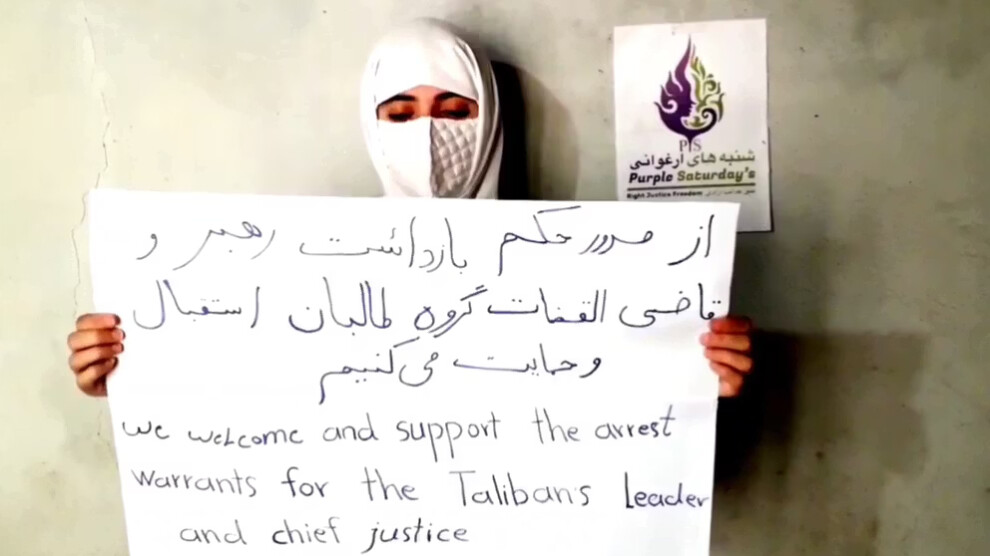 PS
شنبه های ارغوانی
Purple Saturday's
Right Justice Freedom
از صدور حکم بازداشت رهبر و
قاضی القضات گروه طالبان استقبال
و حمایت می‌کنیم
we welcome and support the arrest
warrants for the Talibans Leader
and chief justice